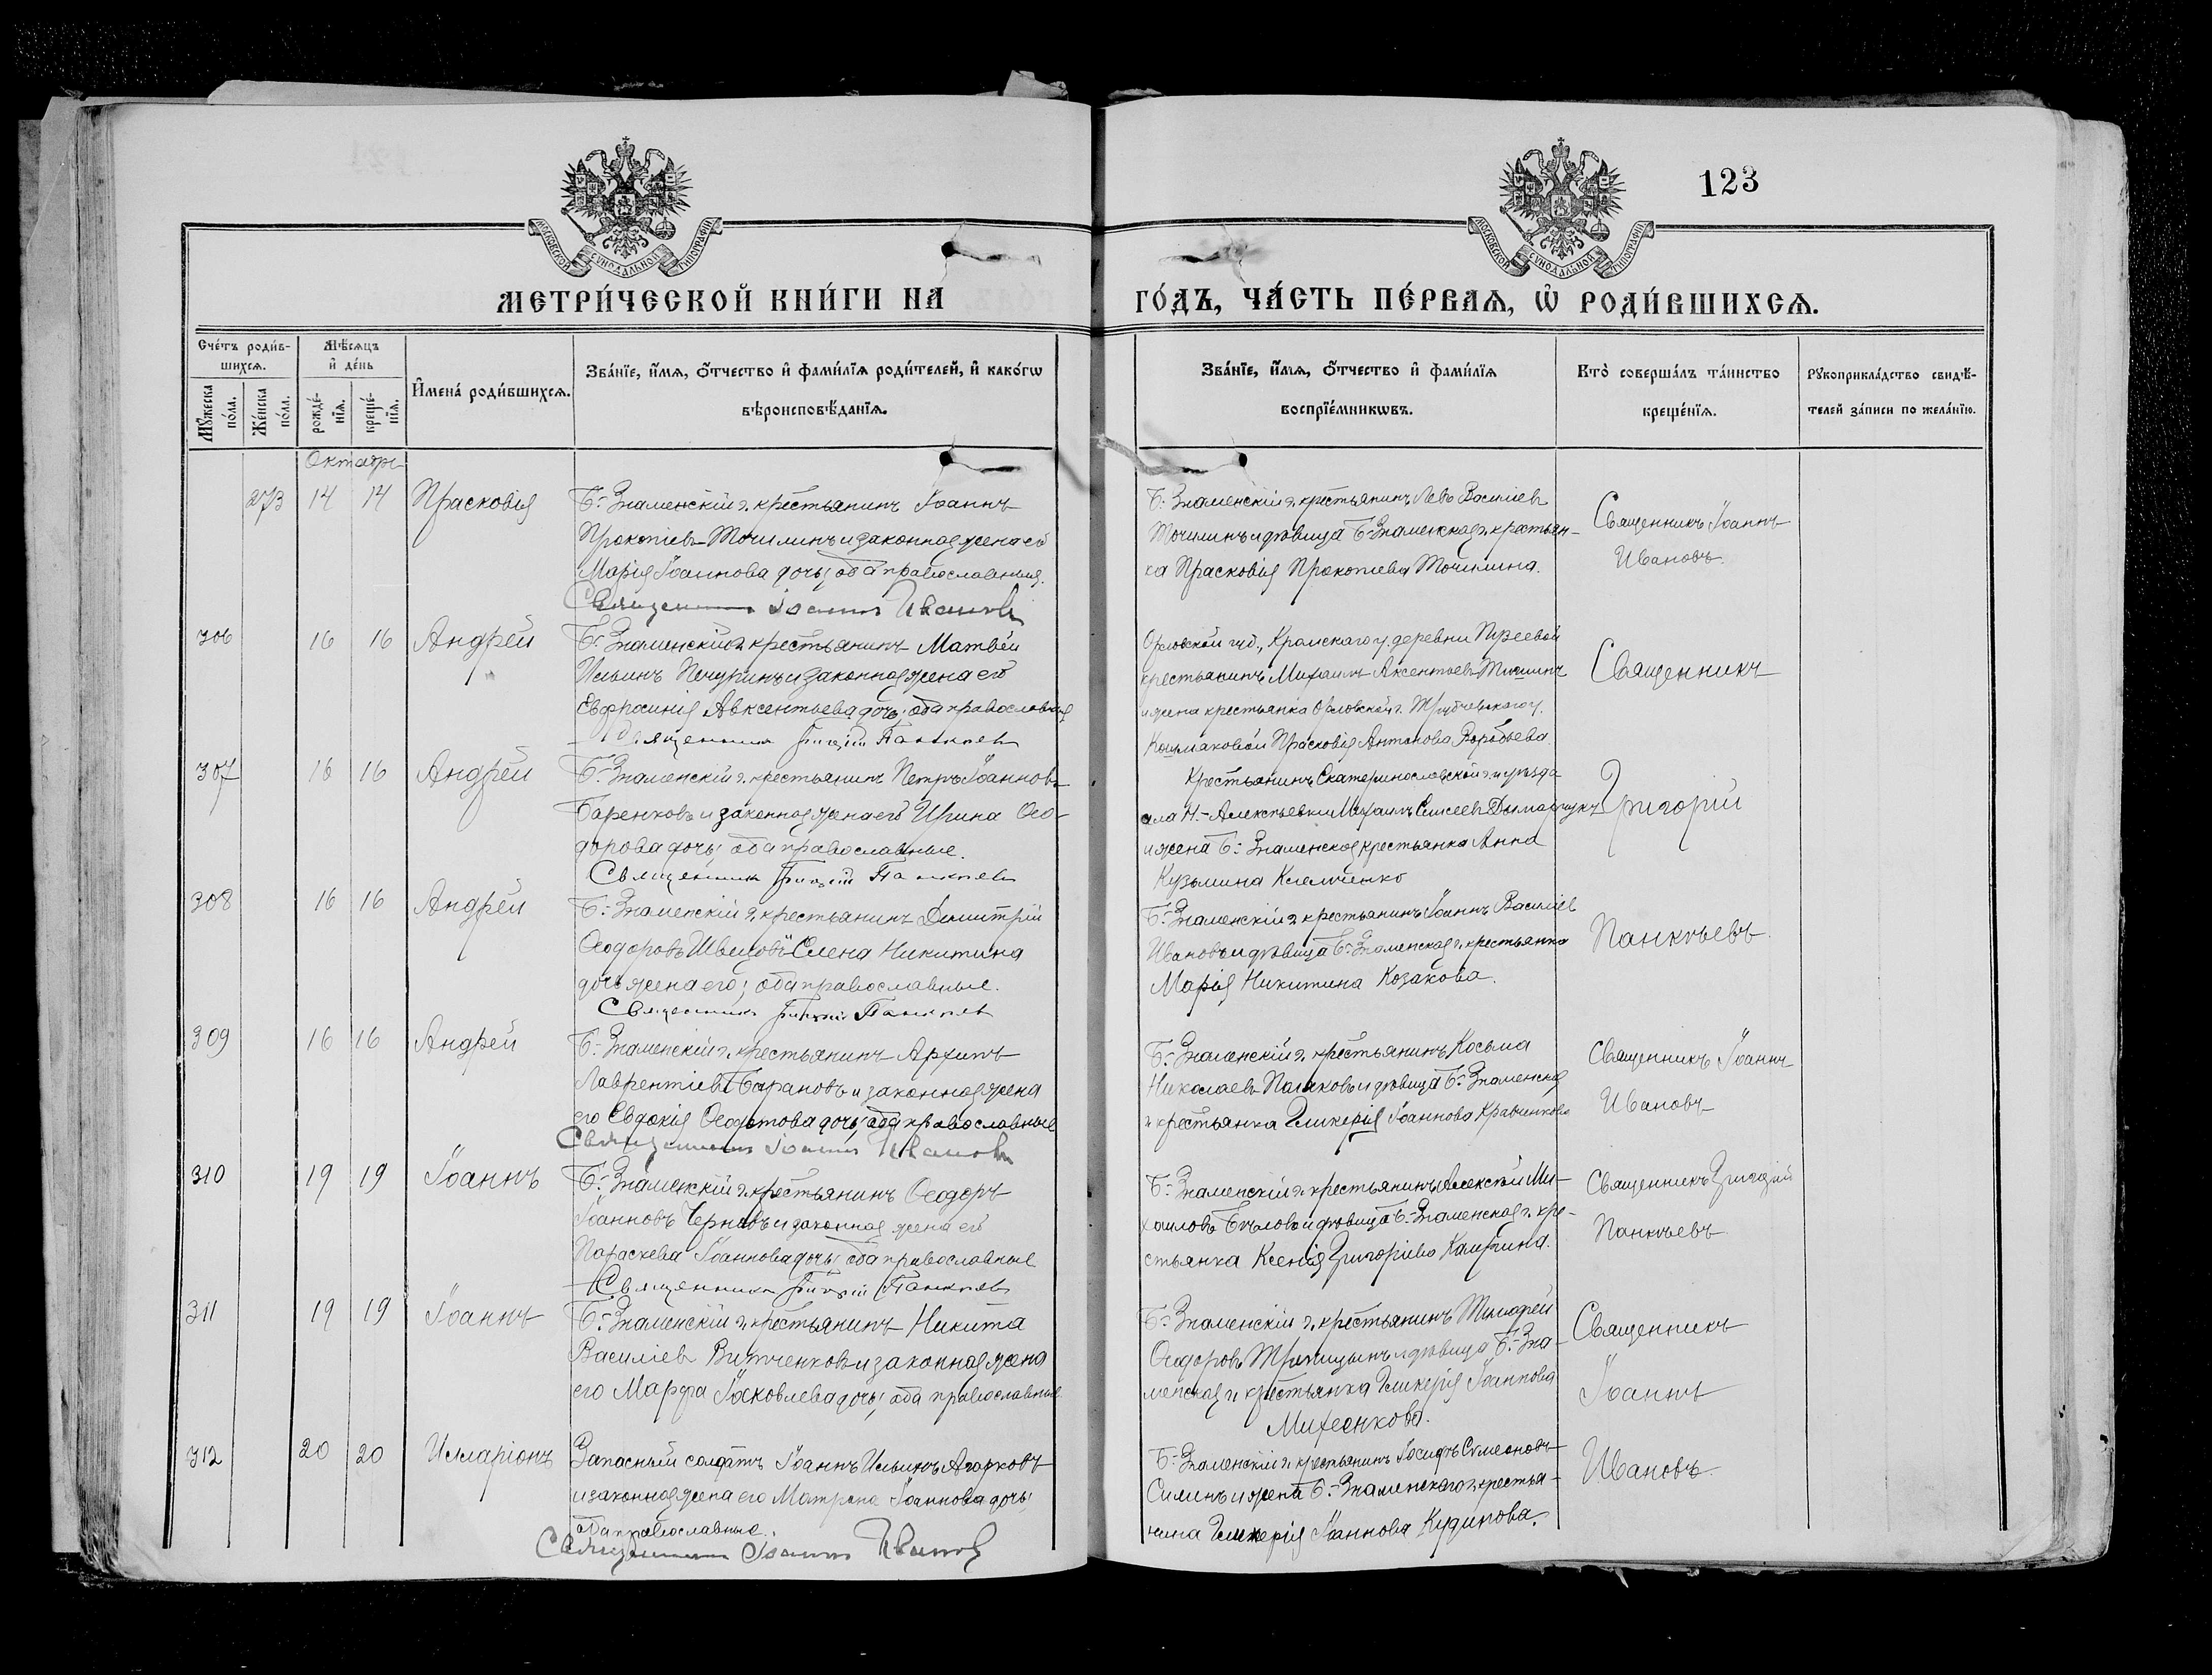 123
МОСКОВСКОЙ СѴНОДАЛЬНОЙ ТИПОГРАФІИ
МОСКОВСКОЙ СѴНОДАЛЬНОЙ ТИПОГРАФІИ
МЕТРИ́ЧЕСКОЙ КНИ́ГИ НА
ГО́ДЪ, ЧА́СТЬ ПЕ́РВАЯ, Ѡ҆ РОДИ́ВШИХСЯ.
Сче́тъ роди́в-
шихся.
Мꙋ́жеска по́ла.
Же́нска по́ла.
Мѣ́сяцъ
и҆ де́нь
рожде́-
нїя.
креще́-
нїя.
И҆мена̀ роди́вшихся.
Зва́нїе, и҆́мя, ѻ҆́тчество и҆ фами́лїя роди́телей, и҆ како́гѡ
вѣроисповѣ́данїя.
Зва́нїе, и҆́мя, ѻ҆́тчество и҆ фами́лїя
воспрїе́мникѡвъ.
Кто̀ соверша́лъ та́инство
креще́нїя.
Рꙋкоприкла́дство свидѣ́-
телей за́писи по жела́нїю.
Октябрь
273 14 14 Прасковія
Б.-Знаменскій г. крестьянинъ Іоаннъ
Прокопіевъ Точилинъ и законная жена его
Марія Іоаннова дочь; оба православныя.
Священникъ Іоаннъ Ивановъ
Б.-Знаменскій г. крестьянинъ Левъ Василіев
Точилинъ и дѣвица Б.-Знаменская г. крестьян-
ка Прасковія Прокопіева Точилина.
Священникъ Іоаннъ
Ивановъ.
306 16 16 Андрей
Б.-Знаменскій г. крестьянинъ Матвѣй
Ильинъ Печуринъ и законная жена его
Евфросинія Авксентьева дочь; оба православныя
Священникъ Григорій Панкѣев
Орловской губ., Кромскаго у. деревни
крестьянинъ Михаилъ Аксентьевъ
и жена крестьянка Орловской г. Трубчевскаго у.
Прасковія Антонова Воробьева.
Священникъ
307 16 16 Андрей
Б.-Знаменскій г. крестьянинъ Петръ Іоанновъ
Баренковъ и законная жена его Ирина Ѳео-
дорова дочь; оба православные.
Священникъ Григорій Панкѣев
Крестьянинъ Екатеринославской г. и уѣзда
села Н.-Алексѣевки Михаилъ Елисеевъ
и жена Б.-Знаменская крестьянка Анна
Кузьмина Клемченко
Григорій
308 16 16 Андрей
Б.-Знаменскій г. крестьянинъ Димитрій
Ѳеодоровъ Швецовъ Елена Никитина
дочь жена его; оба православные.
Священникъ Григорій Панкѣев
Б.-Знаменскій г. крестьянинъ Іоаннъ Василіев
Ивановъ и дѣвица Б.-Знаменская г. крестьянка
Марія Никитина Козакова.
Панкѣевъ.
309 16 16 Андрей
Б.-Знаменскій г. крестьянинъ Архипъ
Лаврентіевъ Барановъ и законная жена
его Евдокія Ѳеодотова дочь; оба православные
Священникъ Іоаннъ Ивановъ
Б.-Знаменскій г. крестьянинъ Косьма
Николаевъ и дѣвица Б.-Знаменская
г. крестьянка Гликерія Іоаннова Кравченкова
Священникъ Іоаннъ
Ивановъ
310 19 19 Іоаннъ
Б.-Знаменскій г. крестьянинъ Ѳеодоръ
Іоанновъ Черновъ и законная жена его
Параскева Іоаннова дочь; оба православные
Священникъ Григорій Панкѣев
Б.-Знаменскій г. крестьянинъ Алексѣй Ми-
хаиловъ Бѣловъ и дѣвица Б.-Знаменская г. кре-
стьянка Ксенія Григоріева
Священникъ Григорій
Панкѣевъ
311 19 19 Іоаннъ
Б.-Знаменскій г. крестьянинъ Никита
Василіев Витченковъ и законная жена
его Марфа Іаковлева дочь; оба православные
Б.-Знаменскій г. крестьянинъ Тимофей
Ѳеодоровъ и дѣвица Б.-Зна-
менская г. крестьянка Гликерія Іоаннова
Михеенкова.
Священникъ
Іоаннъ
312 20 20 Илларіонъ
Запасный солдатъ Іоаннъ Ильинъ Агарковъ
и законная жена его Матрона Іоаннова дочь;
оба православные.
Священникъ Іоаннъ Ивановъ
Б.-Знаменскій г. крестьянинъ Іосифъ Сѵмеоновъ
Силинъ и жена Б.-Знаменскаго г. крестья-
нина Гликерія Іоаннова Кудинова.
Ивановъ.